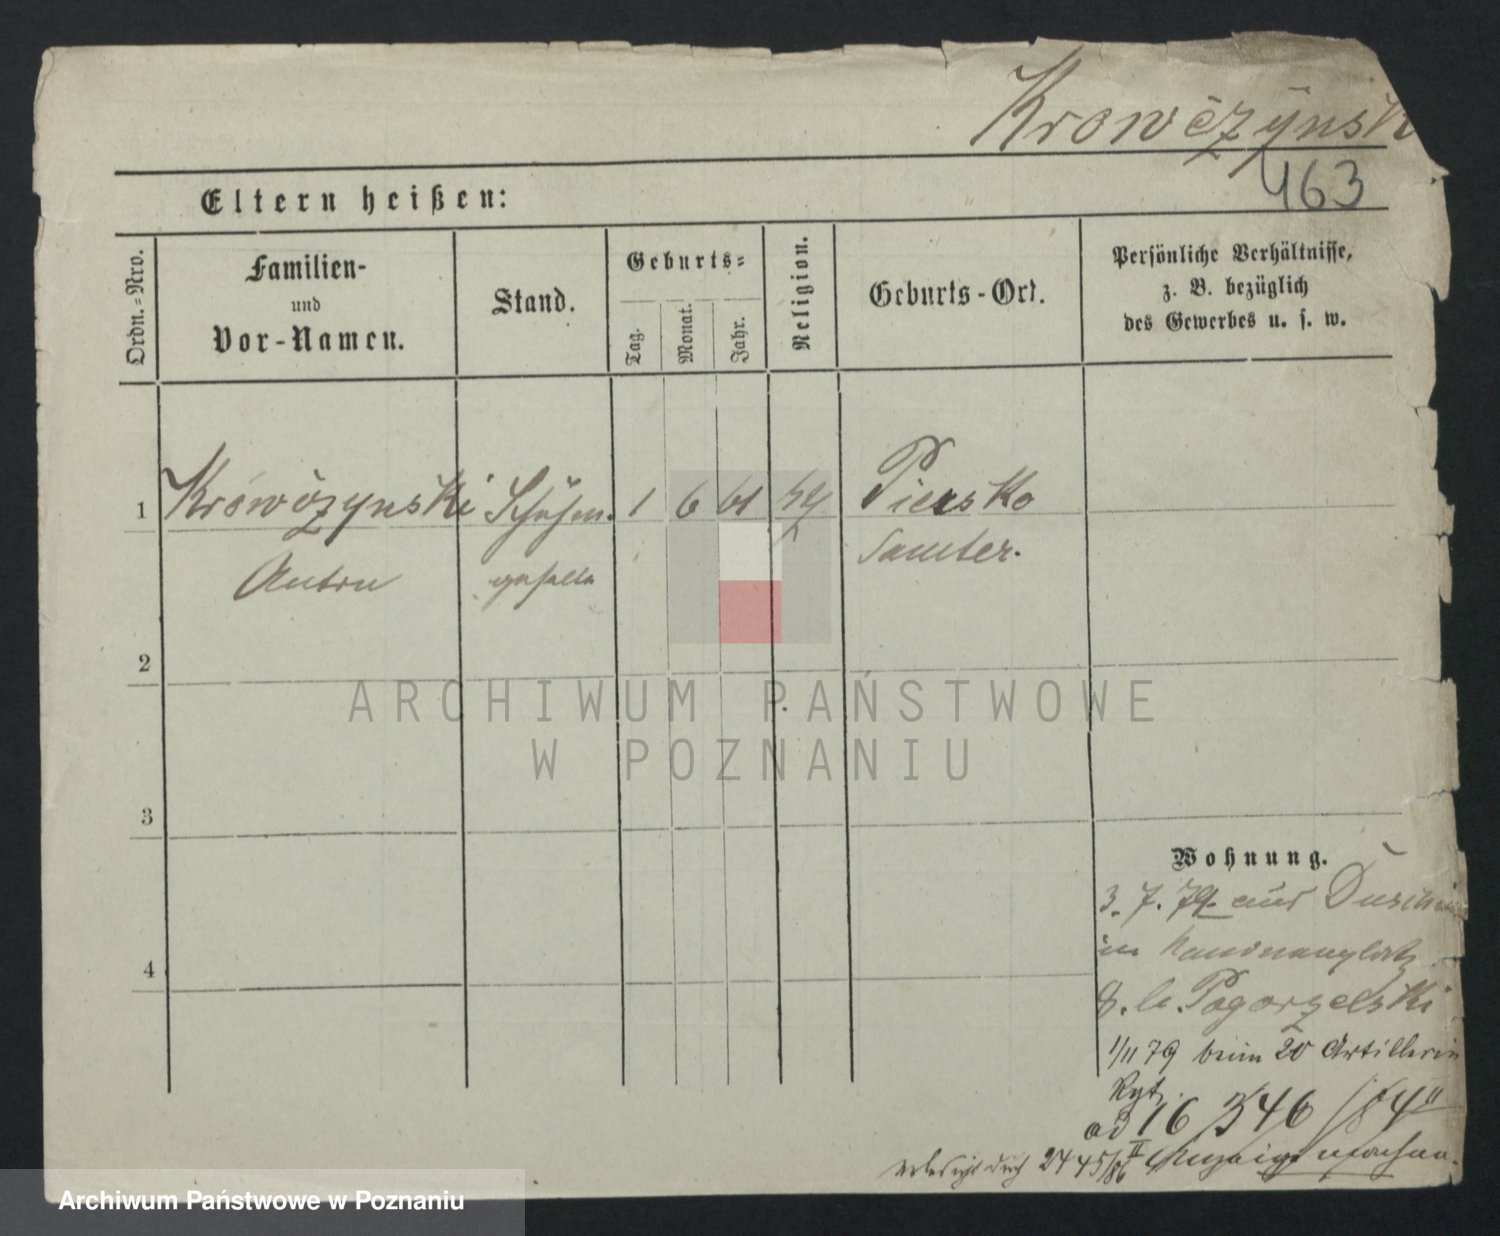 Krowczynsk
463
Eltern heißen:
Ordn.-Nro.
Familien-
und
Vor-Namen.
Stand.
Geburts-
Tag.
Monat.
Jahr.
Religion.
Geburts-Ort.
Persönliche Verhältnisse,
z. B. bezüglich
des Gewerbes u. s. w.
1 Krówczynski Schuhm. 1 6 61 Piersko
Anton geselle Samter.
2
3
4
Wohnung.
3. 7. 79. aus
in Kanonenplatz
8. b. Pogorzelski
1/11 79 beim 20 Artillerie
Rgt.
ad 16 346/84 II
durch 2445/86 II Anzeige machen.
ARCHIWUM PAŃSTWOWE
W POZNANIU
Archiwum Państwowe w Poznaniu